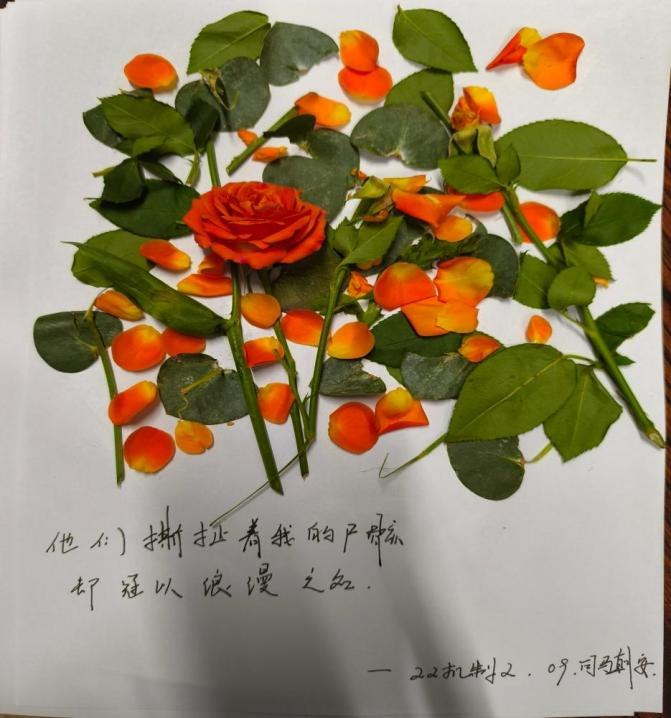 他们撕扯着我的尸骸
却冠以浪漫之名.
— 22机制2. 09.司马